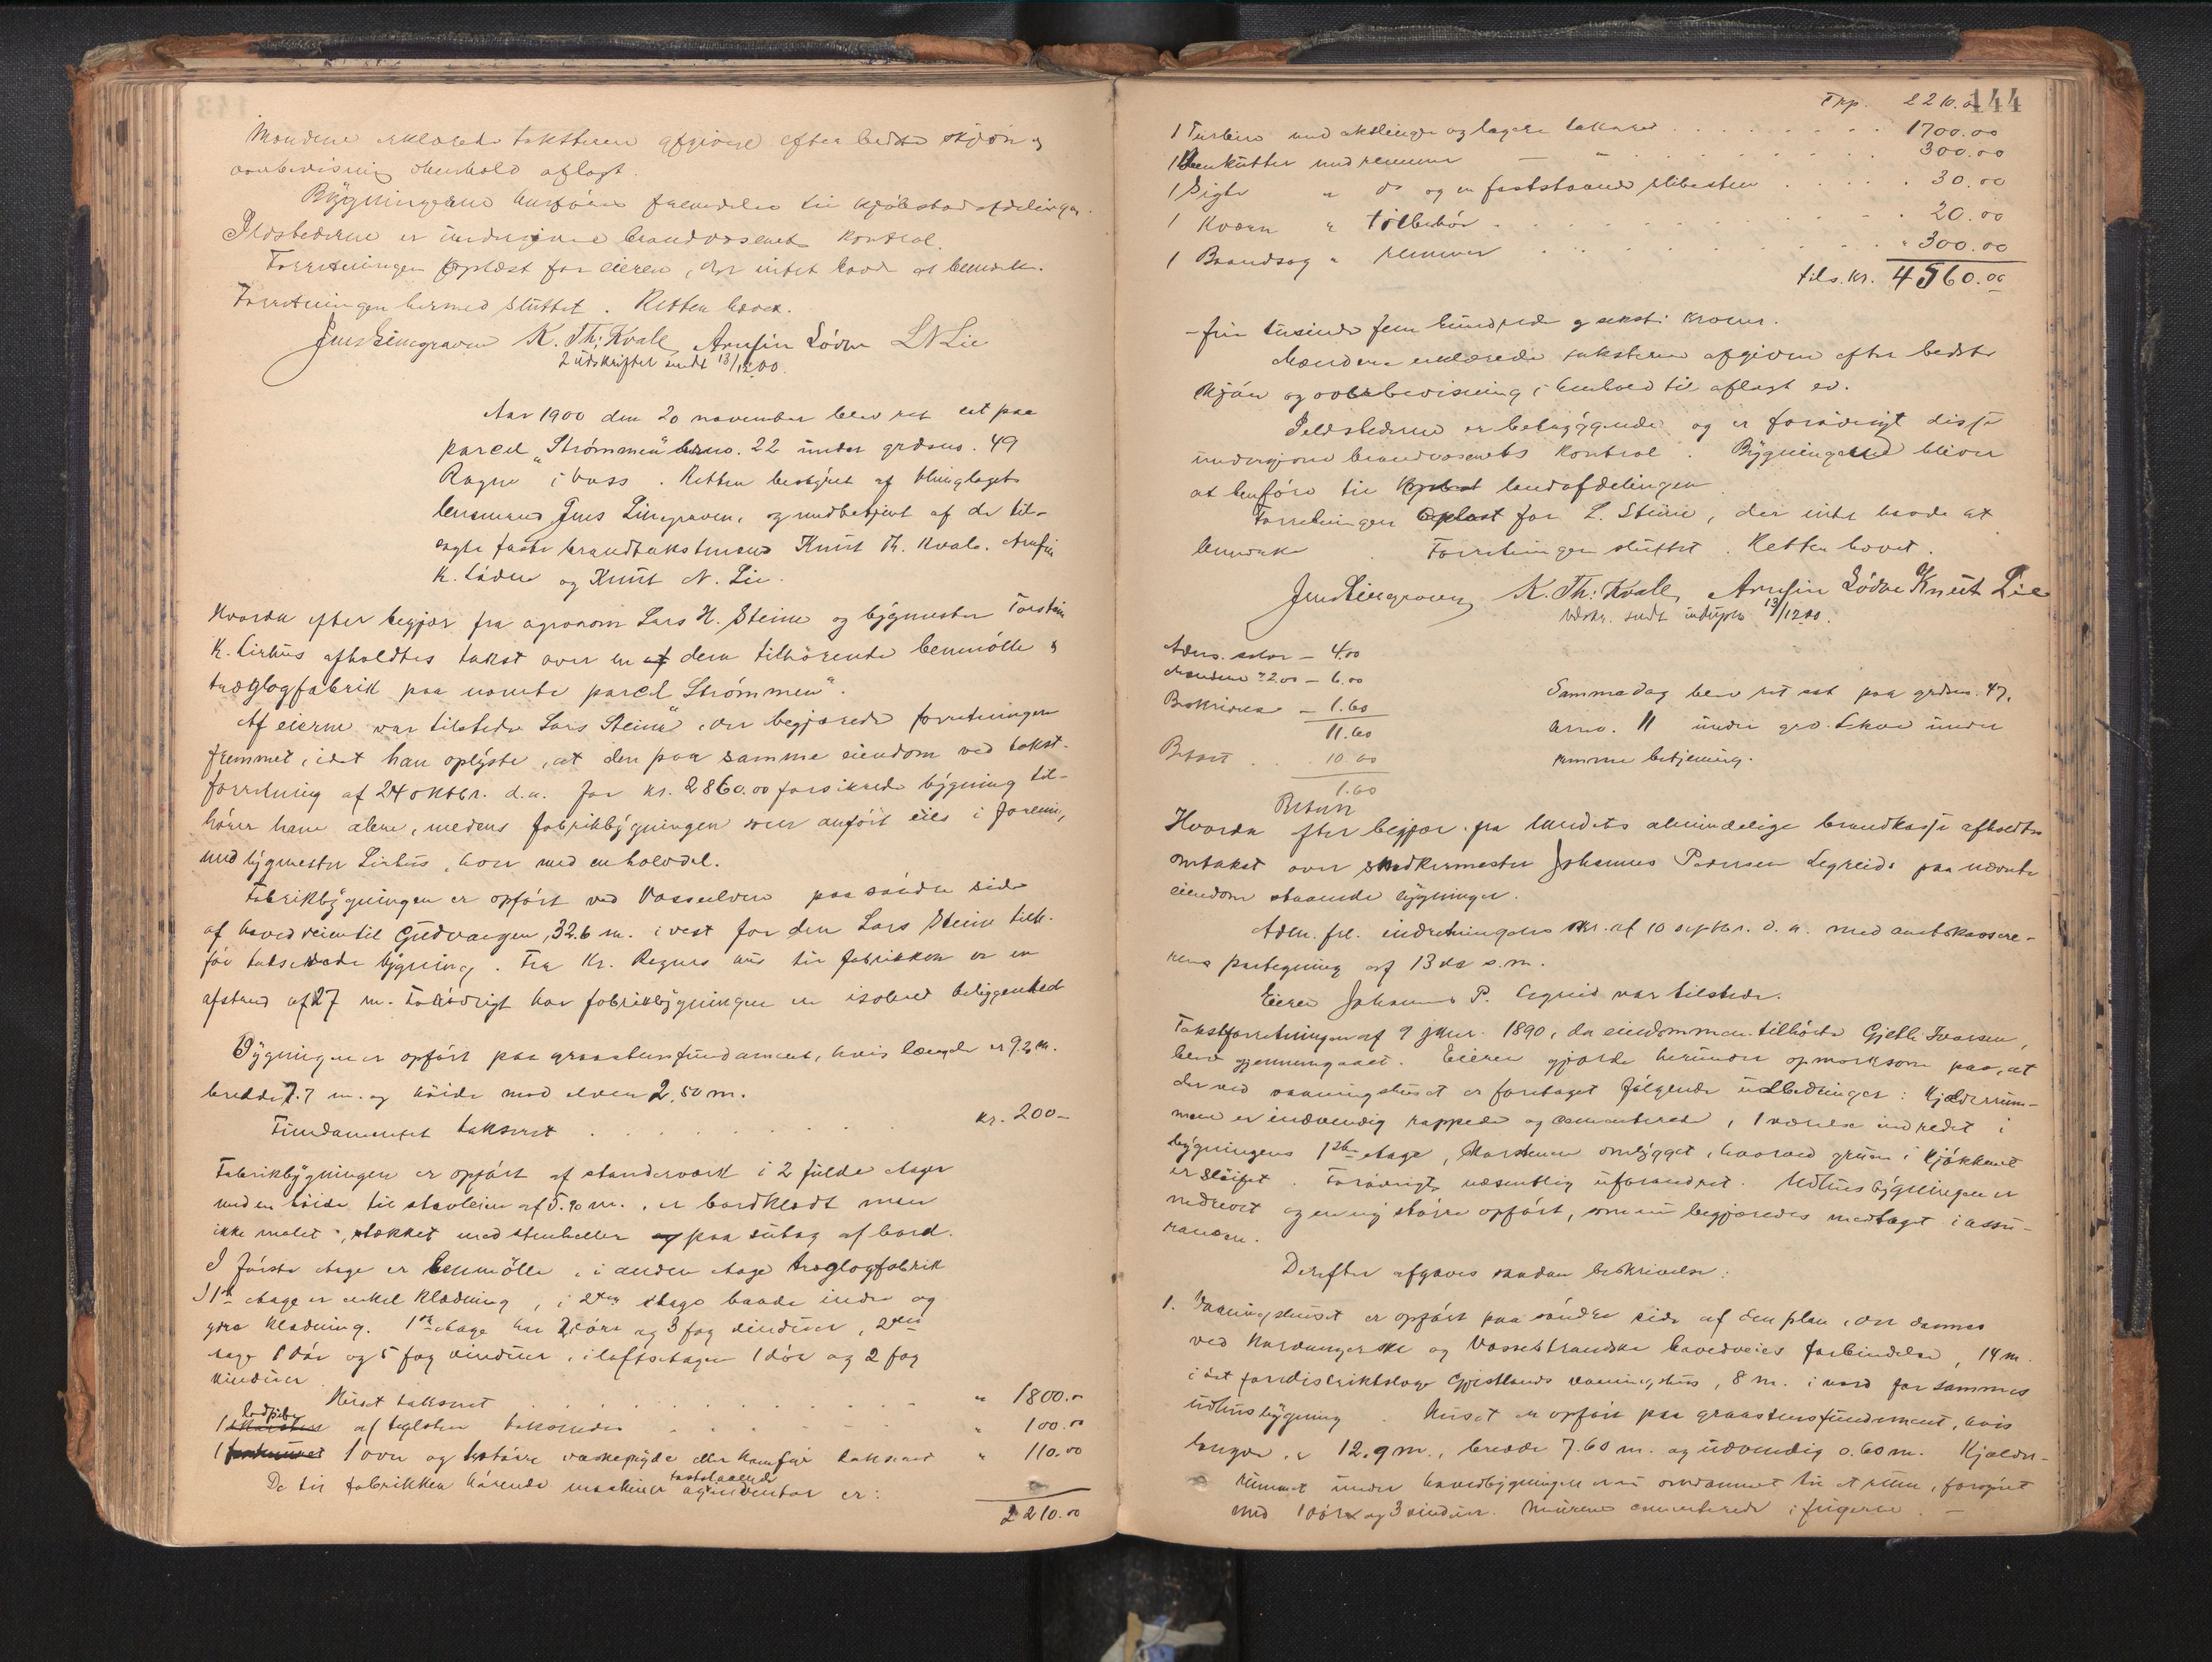 Mændene erklærede taksterne afgivne efter bedste skjøn og
overbevisning i henhold aflagt.
Bygningerne henføres fremdeles til kjøbstadafdelingen.
Ildstederne er undergivne brandvæsenets kontrol.
Forretningen oplæst for eieren, der intet havde at bemærke.
Forretningen hermed sluttet. Retten hævet.
Jens Lirhgraven K. Th: Kvale Arnfin Lødve L N Lie
2 udskrifter sendt 13/12.00.
Aar 1900 den 20 november blev ret sat paa
parcel "Strømmen" brno. 22 under grdsno. 49
Rogne i Voss. Retten bestyret af thinglagets
lensmand Jens og medbetjent af de til-
sagte faste brandtakstmænd Knut Th. Kvale, Arnfin
K. Lødve og Knut N. Lie.
Hvorda efter begjær fra agronom Lars H. Steine og bygmester Torstein
K. Lirhus afholdtes takst over en af dem tilhørende benmølle og
træglogfabrik paa nævnte parcel "Strømmen".
Af eierne var tilstede Lars Steine, der begjærede forretningen
fremmet, idet han oplyste, at den paa samme eiendom ved takst-
forretning af 24 oktbr. d.a. for kr. 2860.00 forsikrede bygning til-
hører ham alene, medens fabrikbygningen som anført eies i forening
med bygmester Lirhus, hver med en halvdel.
Fabrikbygningen er opført ved Vosseelven paa søndre side
af hovedveien til Gudvangen, 32.6 m. i vest for den Lars Steine tilh.
før takserede bygning. Fra Kr. Rognes hus til fabrikken er en
afstand af 27 m. Forøvrigt har fabrikbygningen en isoleret beliggenhed
Bygningen er opført paa graastensfundament, hvis længde er 9.2 m.
bredde 7.7 m. og høide mod elven 2.50 m.
Fundamentet takseret . . . . . . . kr. 200–
Fabrikbygningen er opført af standerværk i 2 fulde etager
med en høide til stavleien af 5.90 m., er bordklædt men
ikke malet, tækket med stenheller paa sutag af bord.
I første etage er benmølle, i anden etage træglogfabrik
I 1ste etage er enkel klædning, i 2den etage baade indre og
ydre klædning. 1ste etage har 2 døre og 3 fag vinduer, 2den
etage 1 dør og 5 fag vinduer, i loftsetagen 1 dør og 2 fag
vinduer
Huset takseret . . . . . . . " 1800.00
1 af teglsten takseredes . . . . . " 100.00
1 1 ovn og større vaskegryde eller komfyr takseret " 110.00
De til fabrikken hørende maskiner og fastslaaende inventar er:
2210.00
144
Trp. 2210.00
1 Turbine med akslinger og lagere takseret . . . . . 1700.00
1 Benkutter med remmer — " . . . . . 300.00
1 Sigte " do og en faststaaende slibesten . . . . . 30.00
1 Kværn " tilbehør . . . . . 20.00
1 Baandsag " remmer . . . . . " 300.00
tils. kr. 4560.00
–fire tusinde fem hundrede og seksti kroner.
Mændene erklærede taksterne afgivne efter bedste
skjøn og overbevisning i henhold til aflagt ed.
Ildstederne er betryggende og er forøvrigt disse
undergivne brandvæsenets kontrol. Bygningerne bliver
at henføre til landafdelingen
Forretningen oplæst for L. Steine, der intet havde at
bemærke. Forretningen sluttet. Retten hævet.
K. Th: Kvale, Arnfin Lødve Knut Lie
udskr. sendt 13/12.00.
– 4.00
Mændene à 2.00 – 6.00
Beskrivelse – 1.60
11.60
Betalt . . . 10.00
1.60
Samme dag blev ret sat paa grdsno. 47,
brno. 11 under grd. under
samme betjening.
Hvorda efter begjær fra landets almindelige brandkasse afholdtes
omtakst over snedkermester Johannes Pedersen Legreids paa nævnte
eiendom staaende bygninger.
Adm. fre. indretningens skr. af 10 septbr. d.a. med amtskassere-
rens paategning af 13de s.m.
Eieren Johannes P. Legreid var tilstede.
Takstforretningen af 9 januar 1890, da eiendommen tilhørte Gjetle Ivarsen,
blev gjennemgaaet. Eieren gjorde herunder opmærksom paa, at
der ved vaaningshuset er foretaget følgende udbedringer: Kjælderrum-
mene er indvendig rappede og cementerede, 1 værelse indredet i
bygningens 1ste etage, skorstenen ombygget, hvorved gruen i kjøkkenet
er sløifet. Forøvrigt væsentlig uforandret. Udhusbygningen er
nedrevet og en ny større opført, som nu begjæredes medtaget i assu-
rancen.
Derefter afgaves saadan beskrivelse:
1. Vaaningshuset er opført paa søndre side af den plan, der dannes
ved Hardangerske og Vossestrandske hovedveies forbindelse, 14 m.
i øst for distriktslæge Gjestlands vaaningshus, 8 m. i nord for sammes
udhusbygning. Huset er opført paa graastensfundament, hvis
længde er 12.9 m., bredde 7.60 m. og udvendig 0.60 m. Kjælder-
rummet under hovedbygningen er nu omdannet til et rum, forsynet
med 1 dør og 3 vinduer. Murene cementerede i fugerne. –